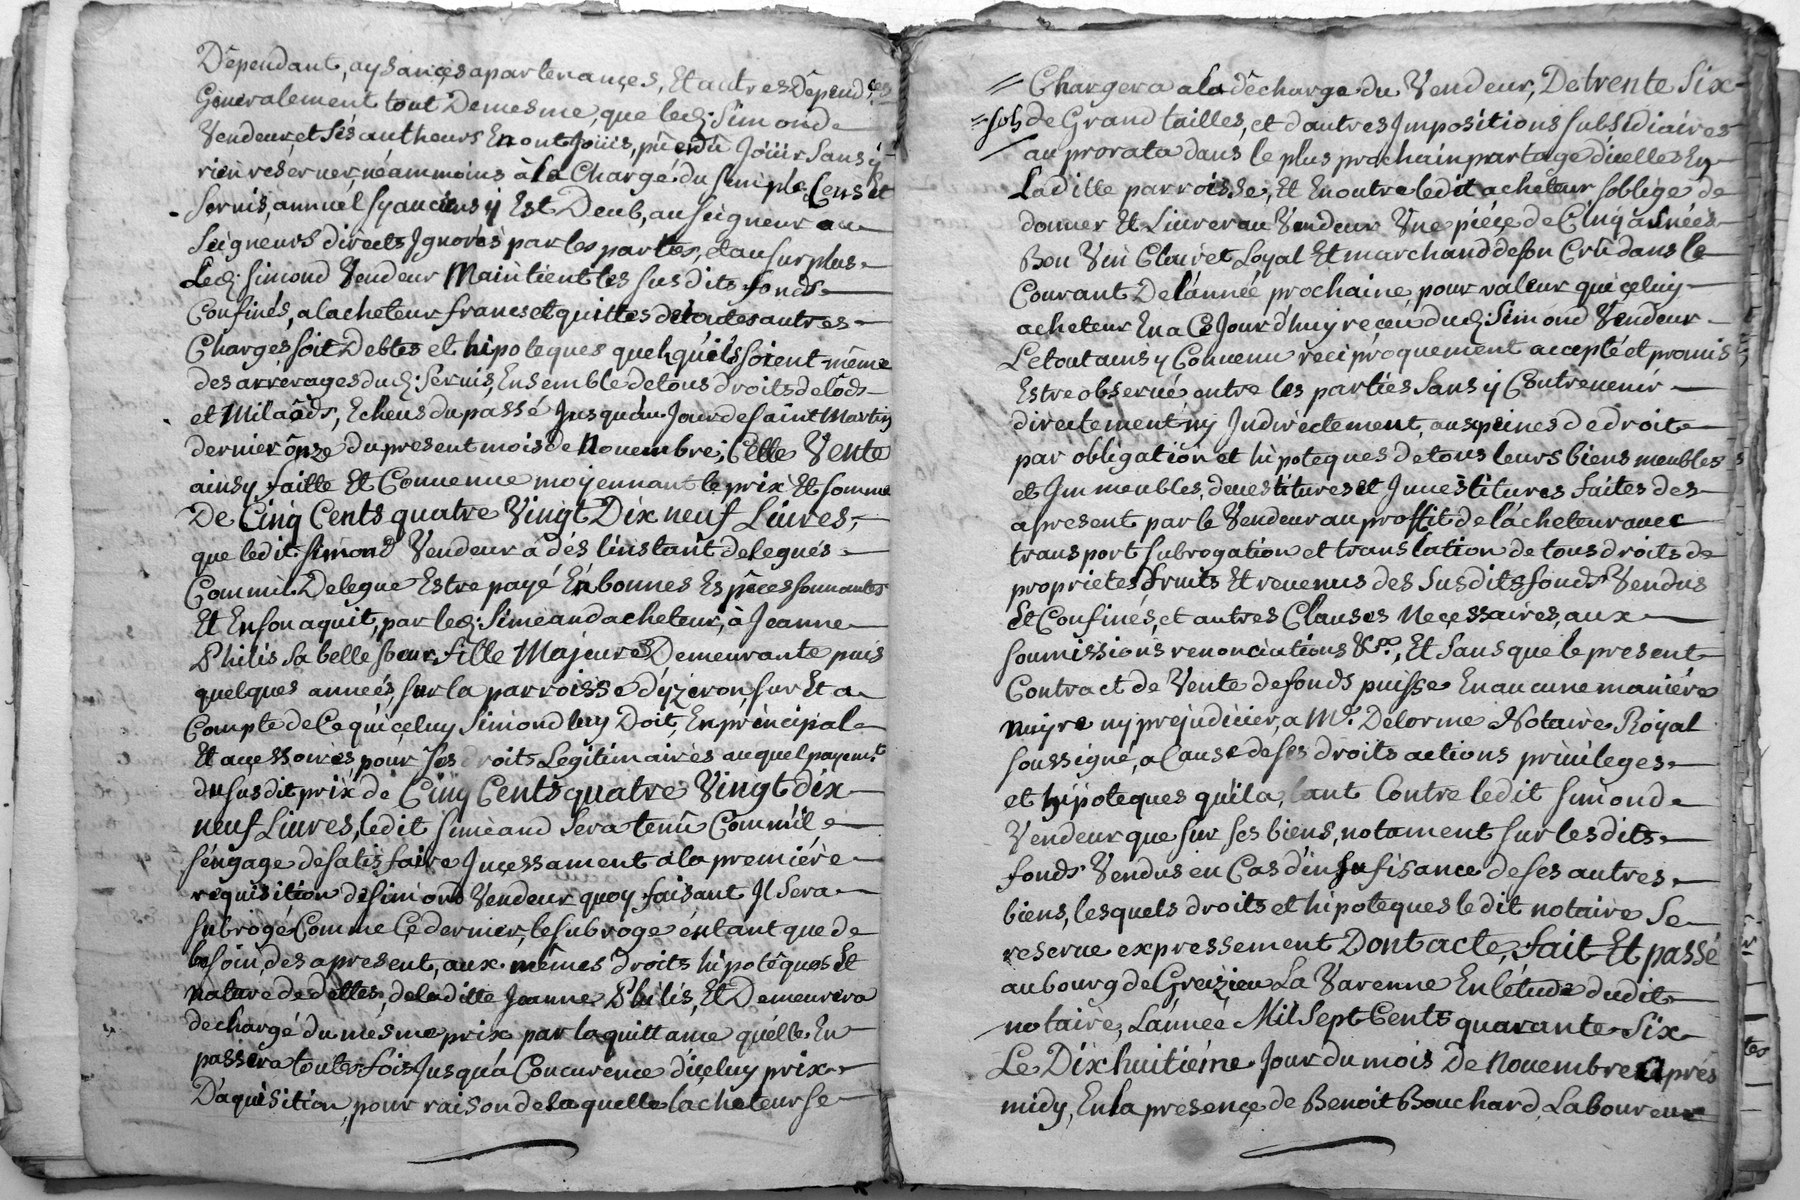 Dêpendant, aysançes apartenançes, Et autres dêpend.ces
Géneralement tout Demesme, que led. Simonde
Vendeur, et Sés autheurs En ont Joüis, pû et dû Joüir Sans y
rien reserver, néammoins à la Chargé du Simple Cens et
Servis, annuel sy anciens y Est Deub, au Seigneur ou
Seigneurs directs Jgnorés par les parties, et au surplus
Led. Simond Vendeur Maintient les susdits fonds
Confinés, a lacheteur francs et quittes de toutes autres
Charges soit Debtes et hipoteques quelqu'ils soient même
des arrérages dud. Servis, Ensemble de tous droits de lods
et Milaods, Echeus du passé Jusqu'au Jour de saint Martin
dernier ônze du present mois de Novembre; Cette Vente
ainsy faitte Et Convenue moyennant le prix Et somme
De Cinq Cents quatre Vingt Dix neuf Livres,
que ledit Simond Vendeur à dés linstant delegués
Comm'il Delegue Estre payé En bonnes Espêces sonnantes
Et En son aquit, par led. Siméand acheteur, à Jeanne
Philis sa belle soeur fille Majeure Demeurante puis
quelques années, sur la parroisse d'yzeron, sur Et a
Compte de Ce qui çeluy Simond luy Doit, En principal
Et açessoires pour ses droits Légitimaires auquel payem.t
du susdit prix de Cinq Cents quatre Vingt dix
neuf Livres, ledit siméand sera tenû Comm'il
s'engage de satisfaire Jnçessament à la premiére
requisition de simond Vendeur quoy faisant Jl Sera
subrogé Comme Ce dernier, le subroge én tant que de
besoin, des apresent, aux mêmes droits hipotêques Et
nature de dettes, de laditte Jeanne Philis, Et Demeurera
dechargé du mesme prix par la quittance qu'elle En
passera toutes fois Jusqu'à Concurence d'içeluy prix
D'aquisition, pour raison de laquelle lacheteur se
Chargera a la dêcharge du Vendeur, De trente Six
sols de Grand tailles, et d'autres Jmpositions subsidiaires
au prorata dans le plus prochain partage d'icelles En
Laditte parroisse, Et En outre ledit acheteur s'oblige de
donner Et Livrer au Vendeur Une piéçe de Cinq asnées
Bon Vin Clairet Loyal Et marchand de son Crû dans le
Courant De l'année prochaine, pour valeur que çeluy
acheteur En a Ce Jourd'huy reçeu dud. Simond Vendeur
Le tout ainsy Convenu reciproquement accepté et promis
Estre observé entre les parties Sans y Contrevenir
directement ny Jndirectement, aux peines de droit
par obligation et hipoteques de tous leurs biens meubles
et Jmmeubles, devestitures et Jnvestitures faites des
apresent par le Vendeur au proffit de l'acheteur avec
transport subrogation et translation de tous droits de
proprietes fruits Et revenus des susdits fonds Vendus
Et Confinés, et autres Clauses Neçessaires, aux
soumissions renonciations &.a, Et Sans que le present
Contract de Vente de fonds puisse En aucune maniére
nuire ny prejudicier, a M.e Delorme Notaire Royal
soussigné, a Cause de ses droits actions privileges
et hipoteques qu'il a, tant Contre ledit simond
Vendeur que sur ses biens, notament sur lesdits
fonds Vendus en Cas d'insufisance de ses autres
biens, lesquels droits et hipoteques ledit notaire Se
reserve expressement Dont acte, fait Et passé
au bourg de Greizieu La Varenne En l'étude dudit
notaire, L'année Mil Sept Cents quarante Six
Le Dix huitiéme Jour du mois De Novembre Aprés
midy, En la presençe de Benoit Bouchard, Laboureur